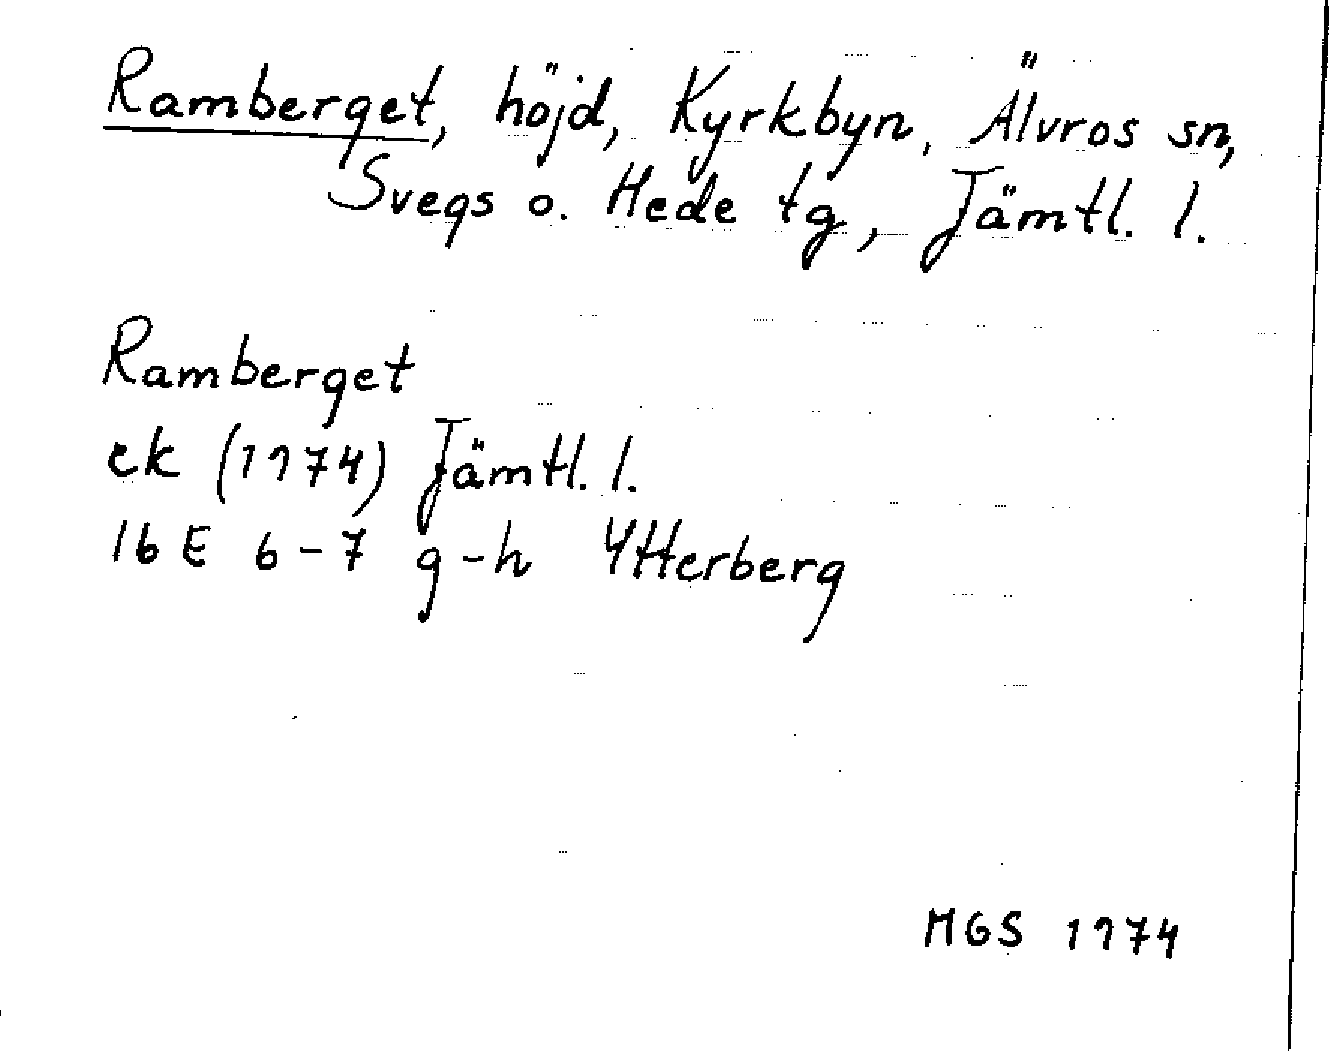 Ramberget, höjd, Kyrkbyn, Älvros sn,
Svegs o. Hede tg, Jämtl. l.
Ramberget
ek (1974) Jämtl. l.
16 E 6-7 g-h Ytterberg
MGS 1974